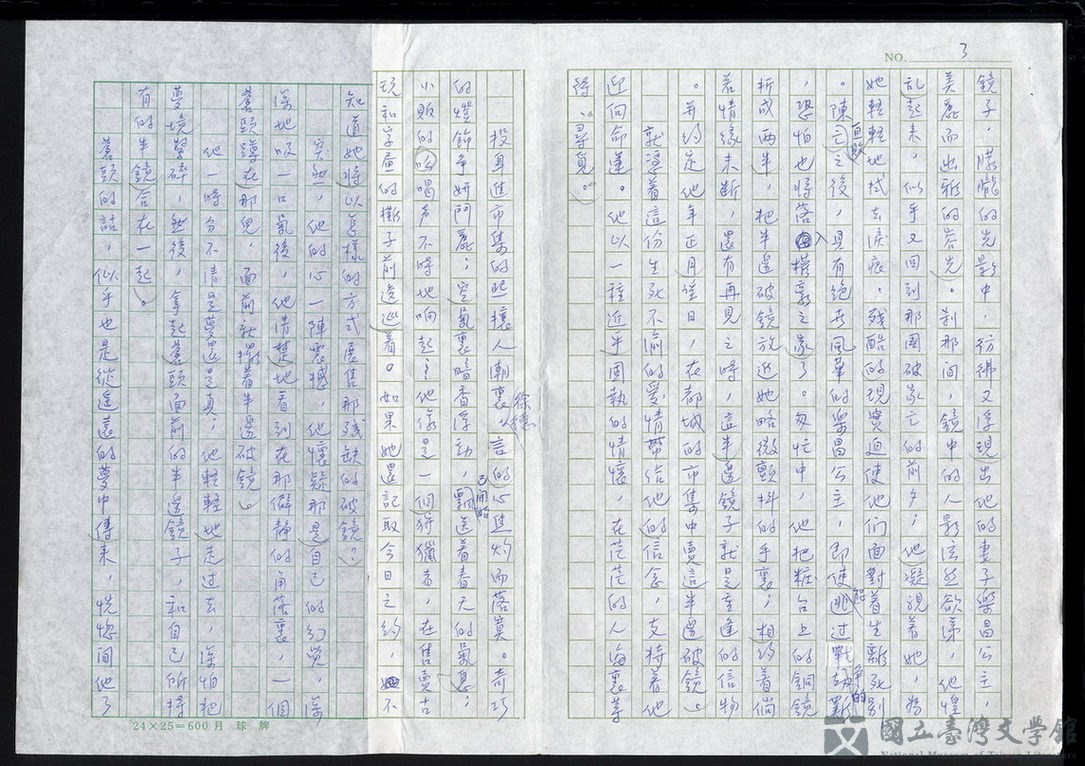 NO. 3
鏡子，朦朧的光影中，彷彿又浮現出他的妻子樂昌公主，
美麗而出雅的容光。剎那間，鏡中的人影泫然欲涕，他惶
乱起來，似乎又回到那國破家亡的前夕；他凝視著她，為
她輕輕地拭去淚痕。殘酷的現實迫使他們面對着生離死別
。陳亡之後，具有絕世風華的樂昌公主，即使能逃过戰爭的
，恐怕也將落入權豪之家了。匆忙中，他把粧台上的銅鏡
折成两半，把半邊破鏡放近她略微顫抖的手裏；相約着倘
若情缘未断，還有再見之時，這半邊鏡子就是重逢的信物
。并約定他年正月望日，在都城的市集中賣這半邊破鏡。
就憑着這份生死不渝的愛情帶给他的信念，支持着他
迎向命運。他以一種近乎固執的情懷，在茫茫的人海裏尋
尋覓。
投身進市集的熙攘人潮裏，徐德言的心焦灼而落寞。奇巧
的燈飾爭妍鬥麗；空氣裏暗香浮動，飄送着春天的氣息；
小販的吆喝声不時地响起，他像是一個狩獵者，在售賣古
玩和字畫的攤子前逡巡着。如果她還記取今日之約，不
知道她將以怎樣的方式展售那残缺的破鏡？
突然，他的心一陣震撼，他懷疑那是自己的幻覺，深
深地吸一口氣後，他清楚地看到在那僻静的角落裏，一個
蒼頭蹲在那兒，面前就擺着半邊破鏡。
他一時分不清是夢還是真；他輕輕地走过去，深怕把
夢境擊碎，然後，拿起蒼頭面前的半邊鏡子，和自己所持
有的半鏡合在一起。
蒼頭的話，似乎也是從遙遠的夢中傳來，恍惚間他了
24×25=600月 球 牌
國立臺灣文學館
National Museum of Taiwan Literature